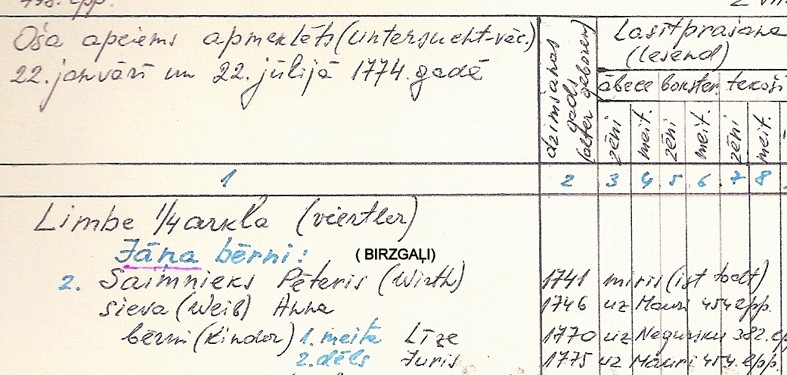 Oša apciems apmeklēts (untersucht-vāc.)
22. janvārī un 22. jūlijā 1774. gadē
dzimšanas gads (alter geboren)
Lasītprašana
(lesend)
ābece bokster. tekoši
zēni meit. zēni meit. zēni meit.
1 2 3 4 5 6 7 8
Limbe 1/4 arkla (viertler)
Jāņa bērni: ( BIRZGAĻI)
2. Saimnieks Pēteris (Wirth) 1741 miris (ist todt)
sieva (Weib) Anna 1746 uz Mauri 454 lpp.
bērni (Kinder) 1. meita Līze 1770 uz 382.
2. dēls Juris 1775 uz Mauri 454. lpp.